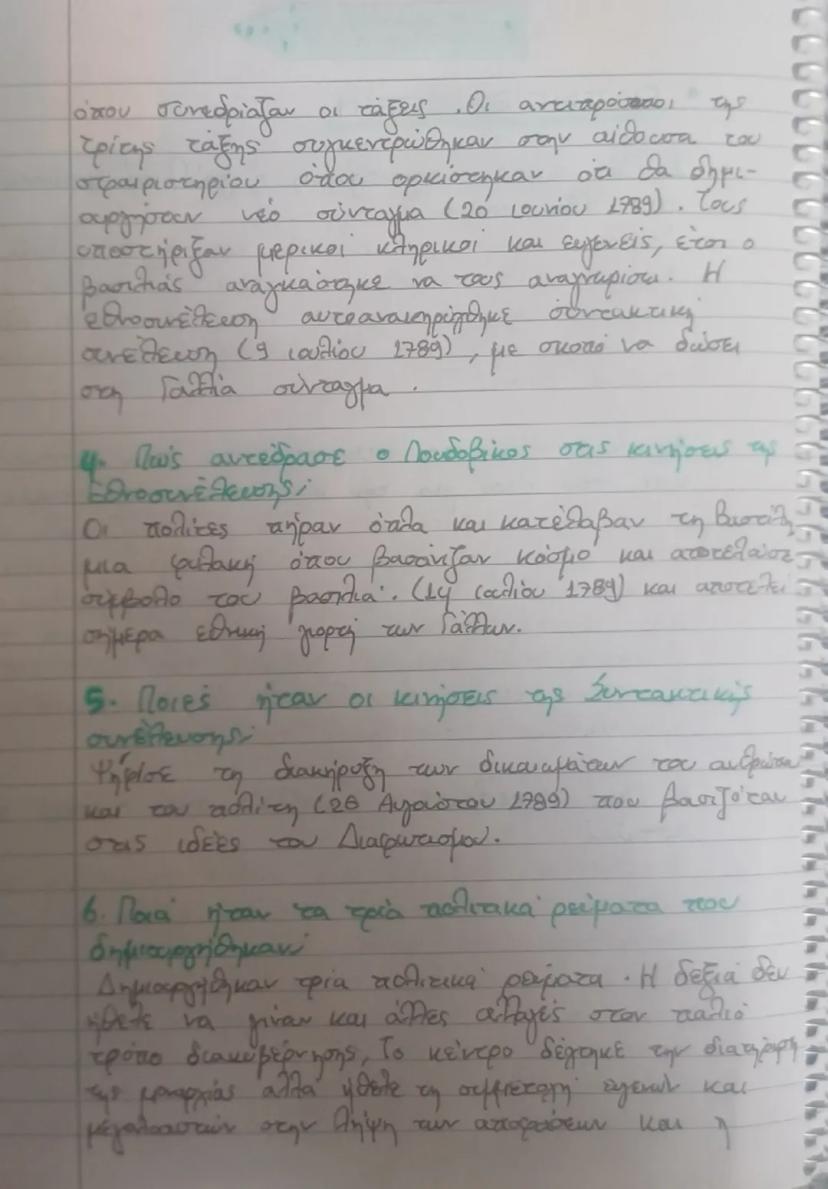 όπου συνεδρίαζαν οι τάξεις. Οι αντιπρόσωποι της
τρίτης τάξης συγκεντρώθηκαν στην αίθουσα του
σφαιριστηρίου όπου ορκίστηκαν ότι θα δημι-
ουργήσουν νέο σύνταγμα (20 Ιουνίου 1789). Τους
υποστήριξαν μερικοί κληρικοί και ευγενείς, έτσι ο
βασιλιάς αναγκάστηκε να τους αναγνωρίσει. Η
εθνοσυνέλευση αυτοανακηρύχθηκε συντακτική
συνέλευση (9 Ιουλίου 1789), με σκοπό να δώσει
στη Γαλλία σύνταγμα.
4. Πώς αντέδρασε ο Λουδοβίκος στις κινήσεις της
Εθνοσυνέλευσης;
Οι πολίτες πήραν όπλα και κατέλαβαν τη
μια φυλακή όπου βασάνιζαν κόσμο και
σύμβολο του βασιλιά. (14 Ιουλίου 1789) και αποτελεί
σήμερα εθνική γιορτή των Γάλλων.
5. Ποιές ήταν οι κινήσεις της Συντακτικής
συνέλευσης;
Ψήφισε τη διακήρυξη των δικαιωμάτων του ανθρώπου
και του πολίτη (26 Αυγούστου 1789) που βασιζόταν
στις ιδέες του Διαφωτισμού.
6. Ποιά ήταν τα τρία πολιτικά ρεύματα που
δημιουργήθηκαν;
Δημιουργήθηκαν τρία πολιτικά ρεύματα. Η δεξιά δεν
ήθελε να γίνουν και άλλες αλλαγές στον παλιό
τρόπο διακυβέρνησης, Το κέντρο δέχτηκε την
της μοναρχίας αλλά ήθελε τη συμμετοχή ευγενών και
μεγαλοαστών στην λήψη των αποφάσεων και η